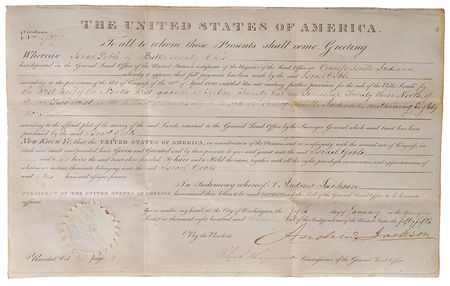 Certificate
No.
THE UNITED STATES OF AMERICA.
To all to whom these Presents shall come, Greeting
Whereas Israel Goble of Butler County Ohio
has deposited in the General Land Office of the United States a certificate of the Register of the Land Office at Crawfordsville Indiana
whereby it appears that full payment has been made by the said Israel Goble
according to the provisions of the Act of Congress of the 24th of April 1820 entitled An act making further provision for the sale of the Public Lands for
the West half of the North East quarter of Section Township Twenty three North of
Range Two West in the district of lands Crawfordsville Indiana containing Eighty
Acres
according to the official plat of the survey of the said Lands, returned to the General Land Office by the Surveyor General which said tract has been
purchased by the said Israel Goble
Now Know Ye, that the UNITED STATES OF AMERICA, in consideration of the Premises, and in conformity with the several acts of Congress, in
such case made and provided, have Given and Granted and by these presents do give and grant unto the said Israel Goble
and to his heirs the said tract above described: To have and to Hold the same, together with all the rights, privileges, immunities, and appurtenances of
whatsoever nature, thereunto belonging, unto the said Israel Goble
and to his heirs and assigns forever
In Testimony whereof I, Andrew Jackson
PRESIDENT OF THE UNITED STATES OF AMERICA, have caused these letters to be made PATENT and the Seal of the General Land Office to be hereunto
affixed
Given under my hand at the City of Washington, the fifth day of January in the Year of our
Lord one thousand eight hundred and and of the Independence of the United States the fifty
By the President
Andrew Jackson
Commissioner of the General Land Office
Recorded Vol page